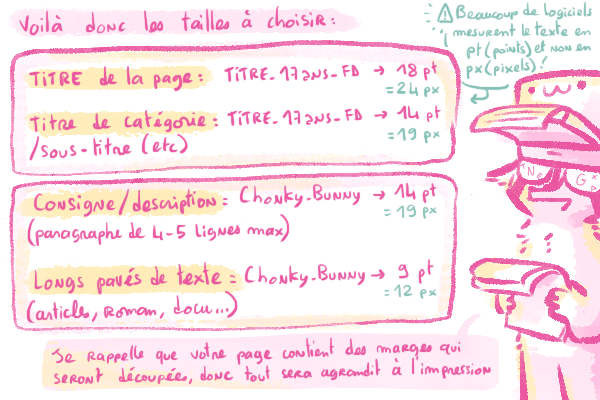 Voilà donc les tailles à choisir :
⚠ Beaucoup de logiciels
mesurent le texte en
pt (points) et non en
px (pixels) !
TiTRE de la page : TiTRE_17ans_FD → 18 pt
= 24 px
Titre de catégorie : TiTRE_17ans_FD → 14 pt
= 19 px
/sous-titre (etc)
Consigne/description : Chonky_Bunny → 14 pt
= 19 px
(paragraphe de 4-5 lignes max)
Longs pavés de texte : Chonky_Bunny → 9 pt
= 12 px
(articles, roman, docu...)
Je rappelle que votre page contient des marges qui
seront découpées, donc tout sera agrandit à l'impression